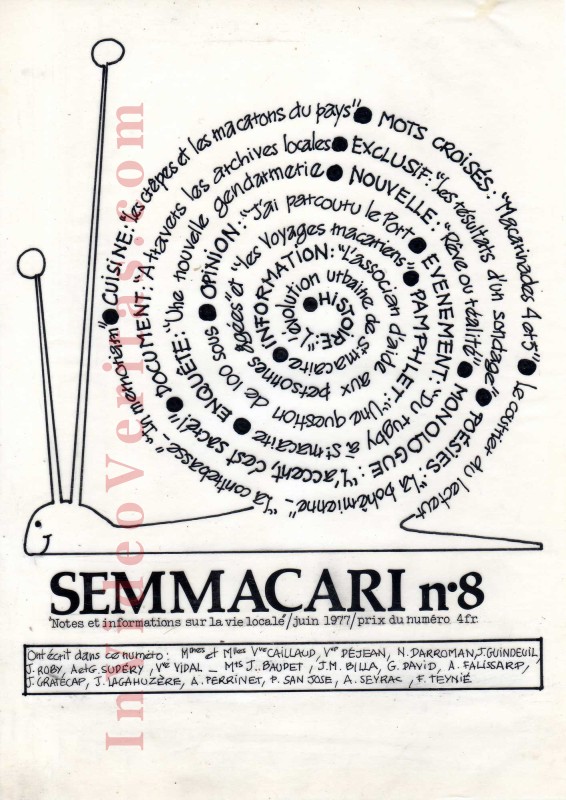 ● HISTOIRE: "L'évolution urbaine de St macaire
● INFORMATION: "L'associan d'aide aux personnes âgées" et "les voyages macariens"
● PAMPHLET: "Une question de 100 sous
● OPINION: "J'ai parcouru le Port
● EVENEMENT: "Du rugby à St macaire
● ENQUÊTE: "Une nouvelle gendarmerie
● NOUVELLE: "Rêve ou réalité"
● MONOLOGUE: "L'accent, c'est sacré!"
● DOCUMENT: "A travers les archives locales
● EXCLUSIF: "les résultats d'un sondage"
● POESIES: "la bohémienne _ "La contrebasse" _ "In memoriam"
● CUISINE: "les crêpes et les macarons du pays"
● MOTS CROISÉS: "Macarinades 4 et 5"
● Le courrier du lecteur
SEMMACARI n°8
'Notes et informations sur la vie locale'/juin 1977/prix du numéro 4fr.
Ont écrit dans ce numéro: Mmes et Mlles Vve CAILLAUD, Vve DÉJEAN, N. DARROMAN, J. GUINDEUIL,
J. ROBY, A et G. SUDÉRY, Vve VIDAL _ Mrs J. BAUDET, J.M. BILLA, G. DAVID, A. FALISSARD,
J. GRATECAP, J. LAGAHUZÈRE, A. PERRINET, P. SAN JOSE, A. SEYRAC, F. TEYNIÉ
InvideoVeritas.com